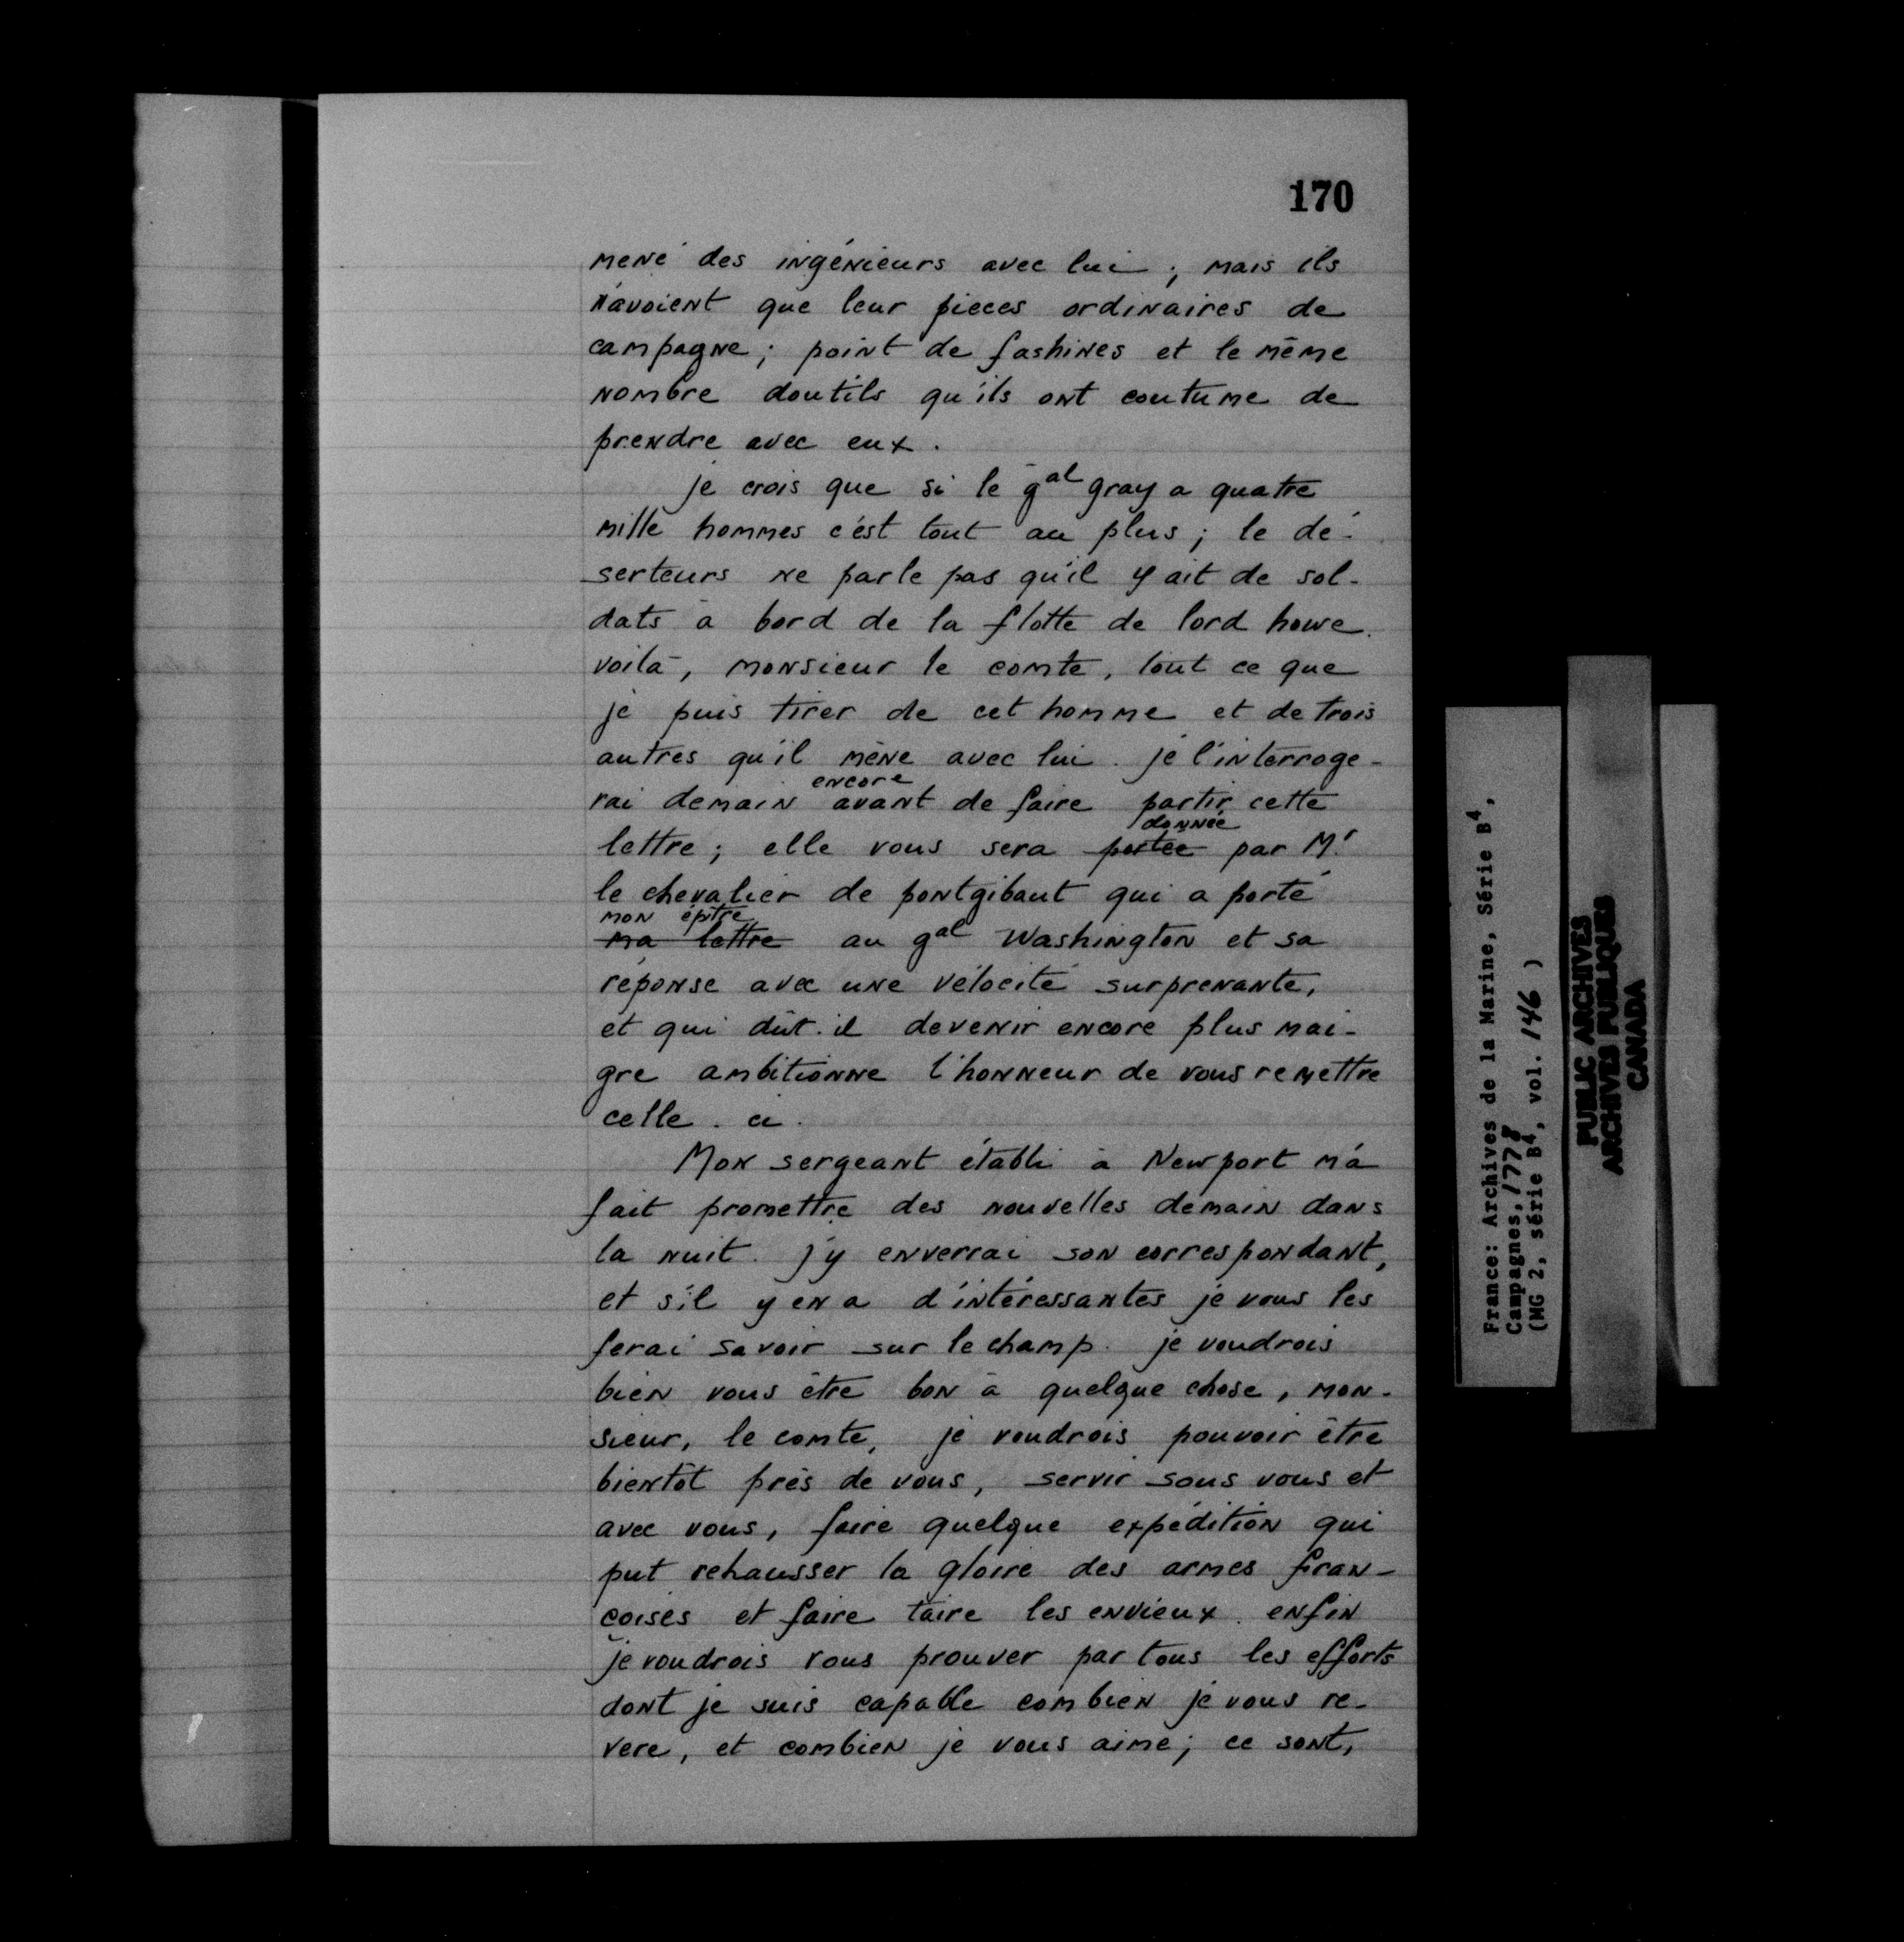 170
mené des ingénieurs avec lui ; mais ils
n'avoient que leur pieces ordinaires de
campagne ; point de fashines et le même
nombre doutils qu'ils ont coutume de
prendre avec eux.
je crois que si le gal gray a quatre
mille hommes c'est tout au plus ; le dé-
serteurs ne parle pas qu'il y ait de sol-
dats à bord de la flotte de lord howe.
voilà, monsieur le comte, tout ce que
je puis tirer de cet homme et de trois
autres qu'il mène avec lui. je l'interroge-
rai demain encore avant de faire partir cette
lettre ; elle vous sera portée donnée par Mr.
le chevalier de pontgibaut qui a porté
ma lettre mon épitre au gal Washington et sa
réponse avec une vélocité surprenante,
et qui dût-il devenir encore plus mai-
gre ambitionne l'honneur de vous remettre
celle-ci.
Mon sergeant établi à Newport m'a
fait promettre des nouvelles demain dans
la nuit. j'y enverrai son correspondant,
et s'il y en a d'intéressantes je vous les
ferai savoir sur le champ. je voudrois
bien vous être bon à quelque chose, mon-
sieur, le comte, je voudrois pouvoir être
bientôt près de vous, servir sous vous et
avec vous, faire quelque expédition qui
put rehausser la gloire des armes fran-
çoises et faire taire les envieux. enfin
je voudrois vous prouver par tous les efforts
dont je suis capable combien je vous re-
vere, et combien je vous aime ; ce sont,
France: Archives de la Marine, Série B4,
Campagnes, 1778
(MG 2, série B4, vol. 146 )
PUBLIC ARCHIVES
ARCHIVES PUBLIQUES
CANADA